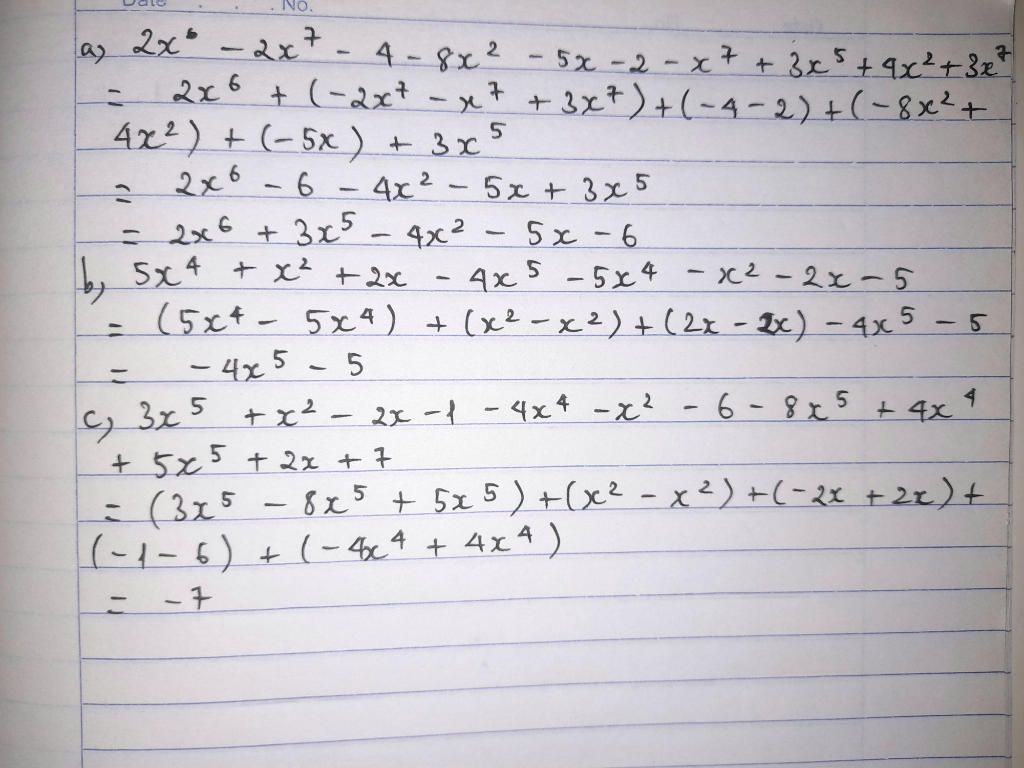 Date . . . No.
a, 2x⁶ - 2x⁷ - 4 - 8x² - 5x - 2 - x⁷ + 3x⁵ + 4x² + 3x⁷
= 2x⁶ + (-2x⁷ - x⁷ + 3x⁷) + (-4 - 2) + (-8x² +
4x²) + (-5x) + 3x⁵
= 2x⁶ - 6 - 4x² - 5x + 3x⁵
= 2x⁶ + 3x⁵ - 4x² - 5x - 6
b, 5x⁴ + x² + 2x - 4x⁵ - 5x⁴ - x² - 2x - 5
= (5x⁴ - 5x⁴) + (x² - x²) + (2x - 2x) - 4x⁵ - 5
= - 4x⁵ - 5
c, 3x⁵ + x² - 2x - 1 - 4x⁴ - x² - 6 - 8x⁵ + 4x⁴
+ 5x⁵ + 2x + 7
= (3x⁵ - 8x⁵ + 5x⁵) + (x² - x²) + (-2x + 2x) +
(-1 - 6) + (-4x⁴ + 4x⁴)
= -7